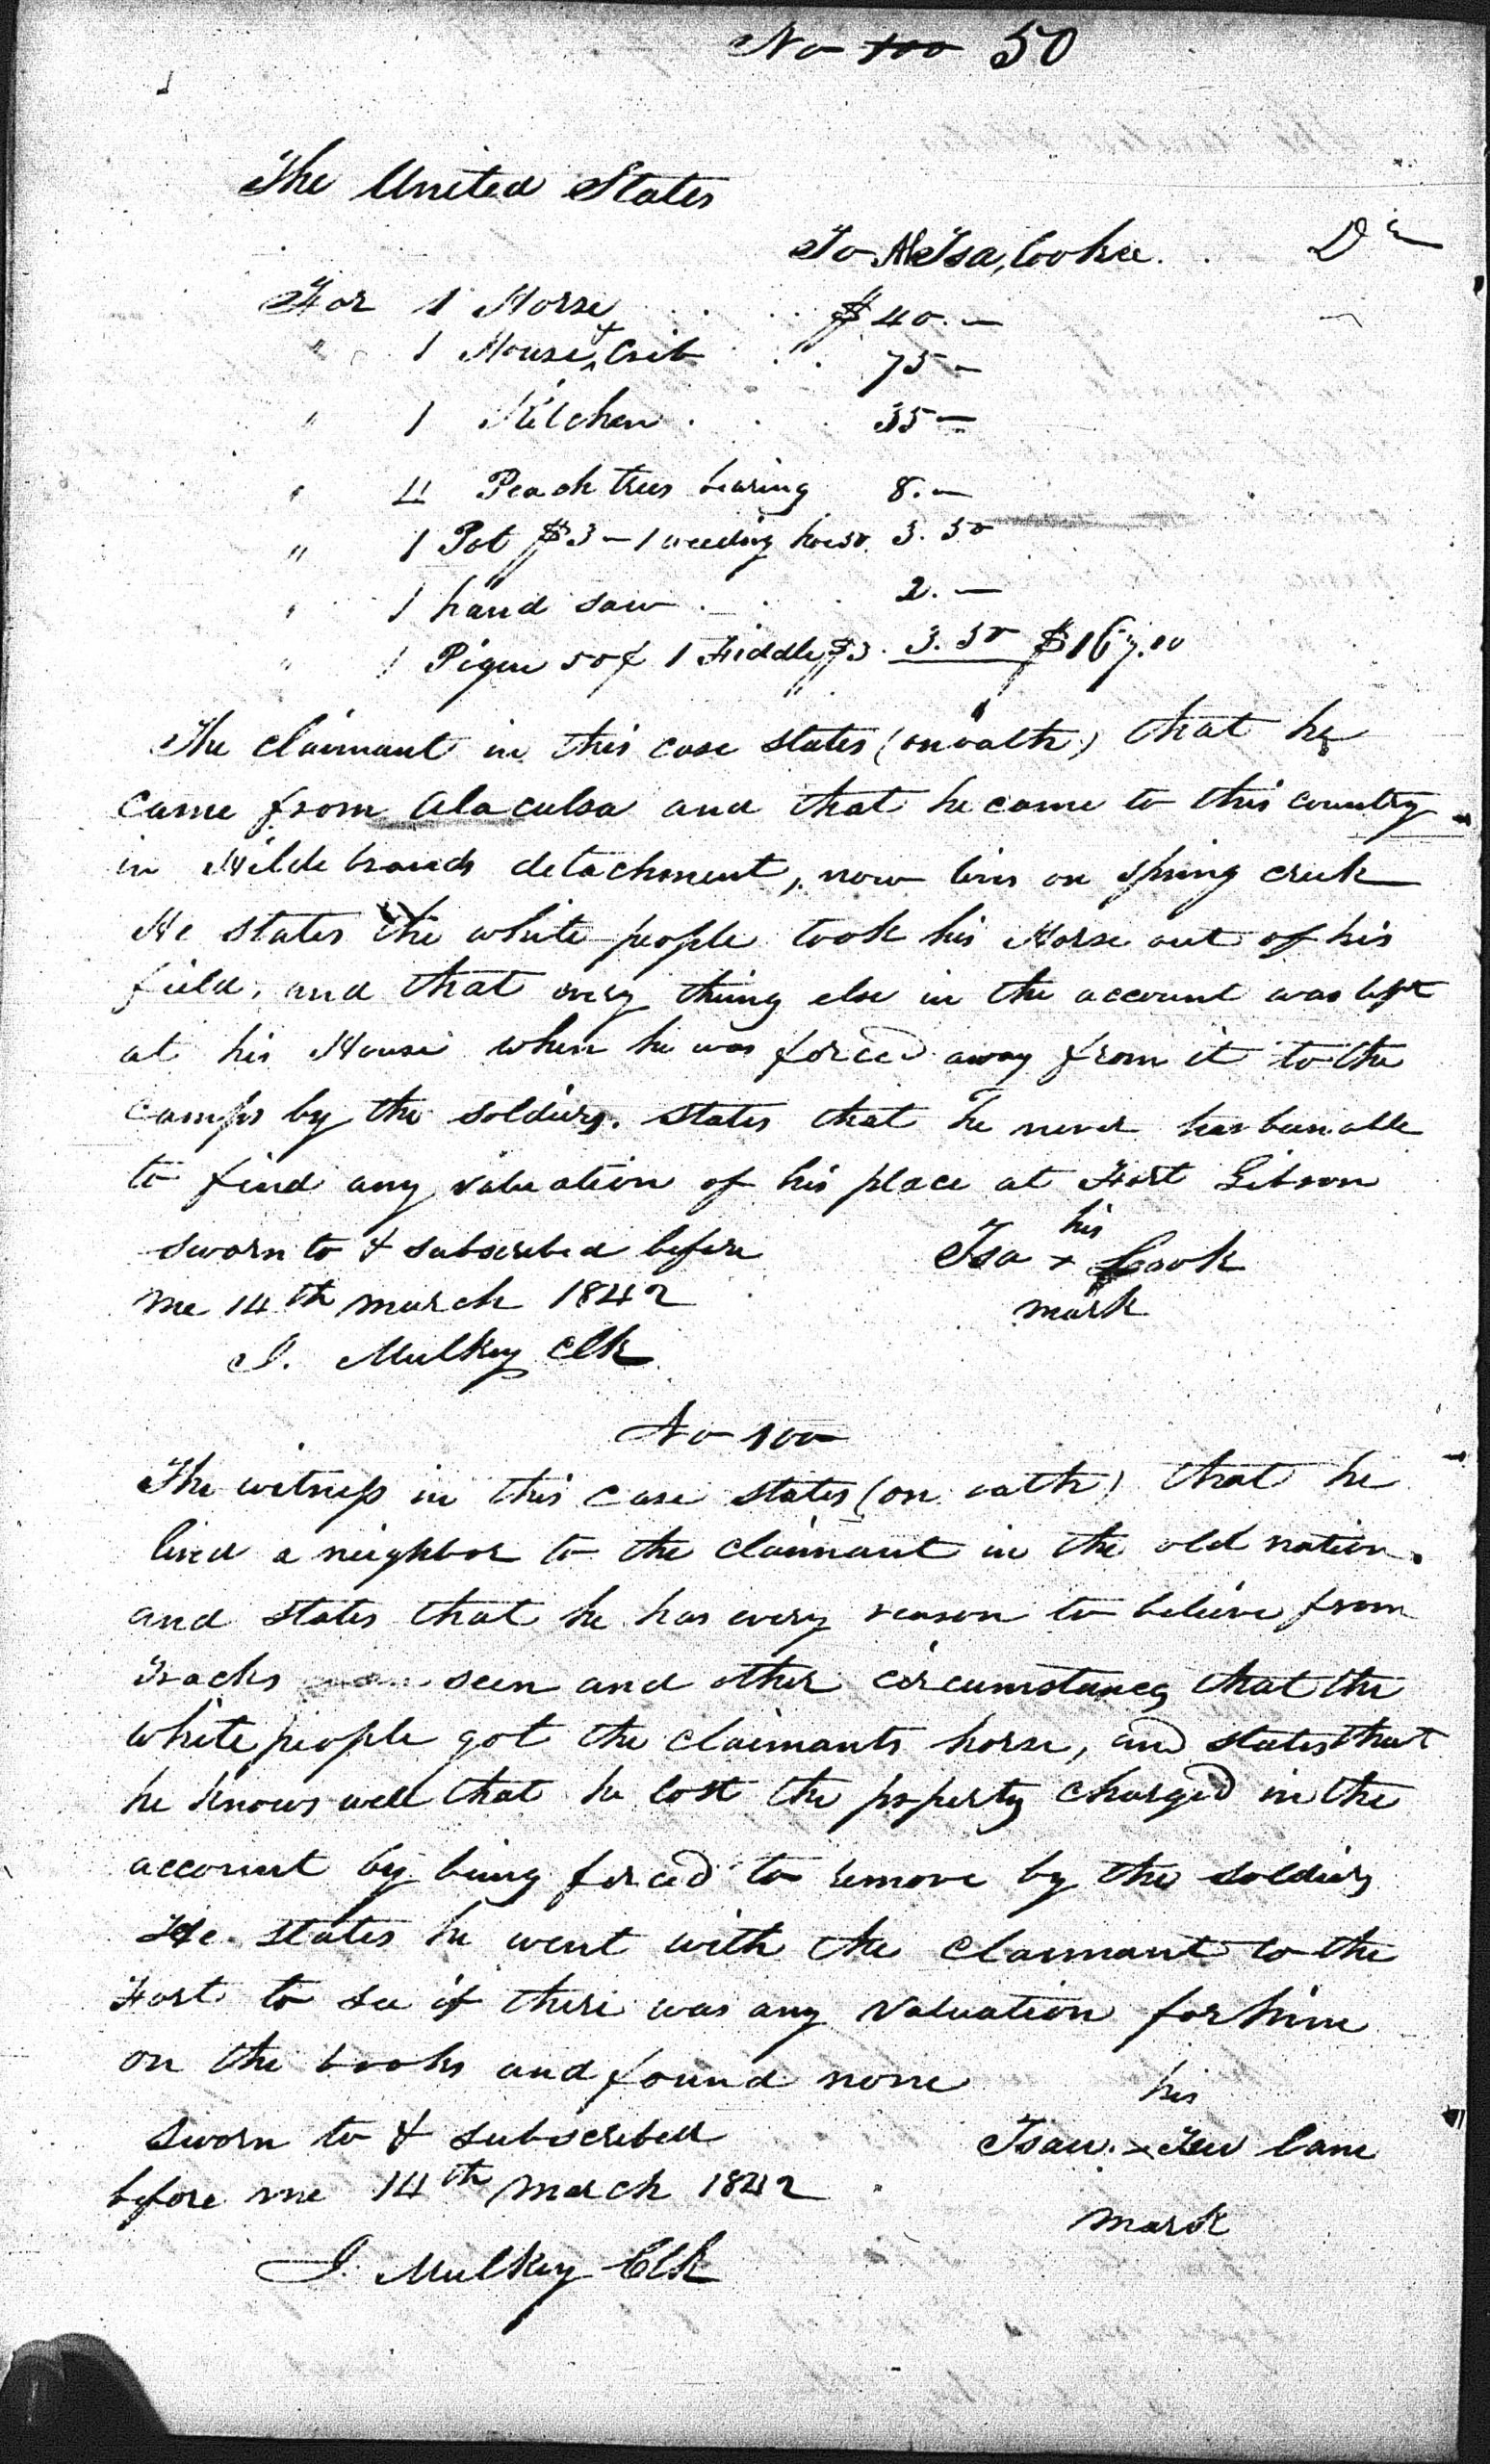 No 100 50
The United States
To Tsa, Cookee . . Dr
For 1 Horse . . . $40.—
" 1 House & Crib . . 75—
" 1 Kitchen . . . 35—
" 4 Peach trees bearing 8.—
" 1 Pot $3 — 1 weeding hoe 50. 3.50
" 1 hand saw . . . 2.—
" 1 Pigen 50¢ 1 Fiddle $3. 3.50 $167.00
The claimant in this case states (on oath) that he
came from Alaculsa and that he came to this country
in Hildebrands detachment, now livis on spring creek
He states the white people took his Horse out of his
field, and that every thing else in the account was left
at his House when he was forced away from it to the
camps by the soldiers. states that he never has been able
to find any valuation of his place at Fort Gibson
sworn to & subscribed before
me 14th march 1842
J. Mulkey Clk
his
Tsa x Cook
mark
No 100
The witness in this case states (on oath) that he
lived a neighbor to the claimant in the old nation.
and states that he has every reason to believe from
tracks seen and other circumstances that the
white people got the claimants horse, and states that
he knows well that he lost the property charged in the
account by being forced to remove by the soldiers
He states he went with the claimant to the
Fort to see if there was any valuation for him
on the books and found none
sworn to & subscribed
before me 14th march 1842
J. Mulkey Clk
his
x
mark